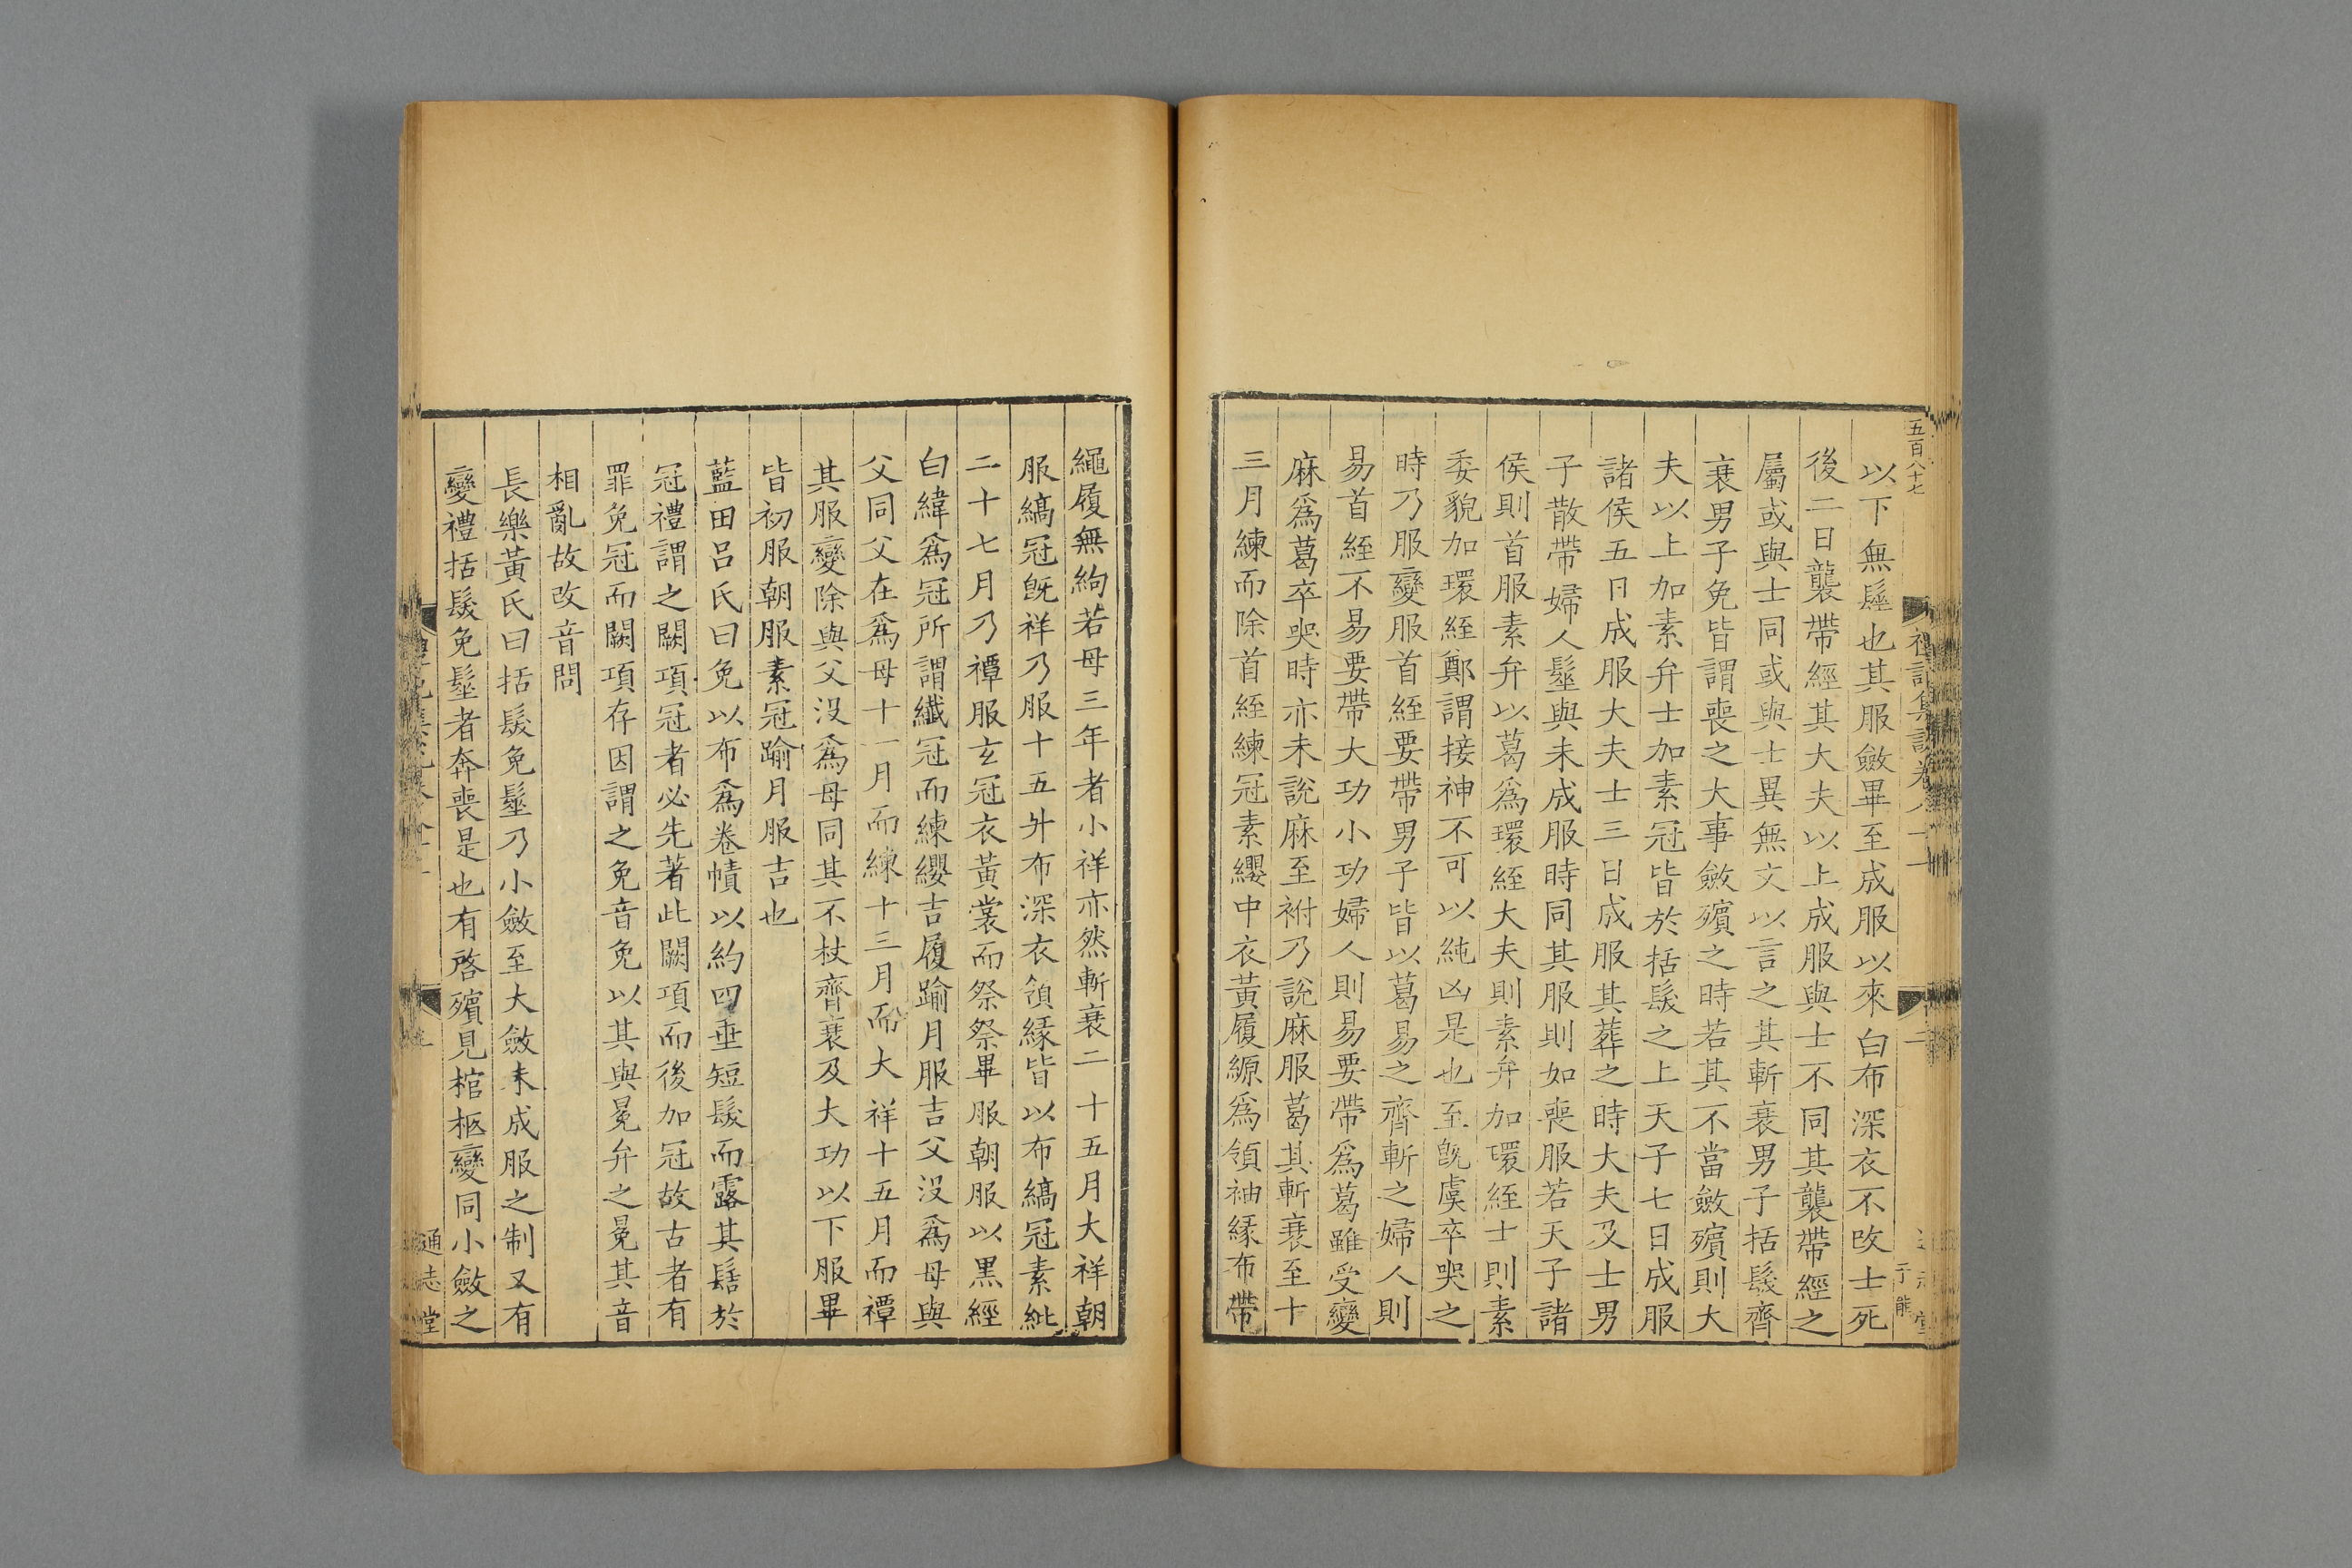 五百八十七
以下無髽也其服斂畢至成服以來白布深衣不改士死
後二日襲帶絰其大夫以上成服與士不同其襲帶經之
屬或與士同或與士異無文以言之其斬衰男子括髮齊
衰男子免皆謂喪之大事斂殯之時若其不當斂殯則大
夫以上加素弁士加素冠皆於括髮之上天子七日成服
諸侯五日成服大夫士三日成服其葬之時大夫及士男
子散帶婦人髽與未成服時同其服則如喪服若天子諸
侯則首服素弁以葛爲環絰大夫則素弁加環絰士則素
委貌加環絰鄭謂接神不可以純凶是也至旣虞卒哭之
時乃服變服首絰要帶男子皆以葛易之齊斬之婦人則
易首絰不易要帶大功小功婦人則易要帶爲葛雖受變
麻爲葛卒哭時亦未說麻至祔乃說麻服葛其斬衰至十
三月練而除首絰練冠素纓中衣黃履縓爲領袖緣布帶
繩履無絇若母三年者小祥亦然斬衰二十五月大祥朝
服縞冠旣祥乃服十五升布深衣領緣皆以布縞冠素紕
二十七月乃禫服玄冠衣黃裳而祭祭畢服朝服以黑經
白緯爲冠所謂纖冠而練纓吉履踰月服吉父没爲母與
父同父在爲母十一月而練十三月而大祥十五月而禫
其服變除與父没爲母同其不杖齊衰及大功以下服畢
皆初服朝服素冠踰月服吉也
藍田呂氏曰免以布爲卷幘以約四垂短髮而露其髻於
冠禮謂之闕項冠者必先著此闕項而後加冠故古者有
罪免冠而闕項存因謂之免音免以其與冕弁之冕其音
相亂故改音問
長樂黃氏曰括髮免髽乃小斂至大斂未成服之制又有
變禮括髮免髽者奔喪是也有啓殯見棺柩變同小斂之
通志堂